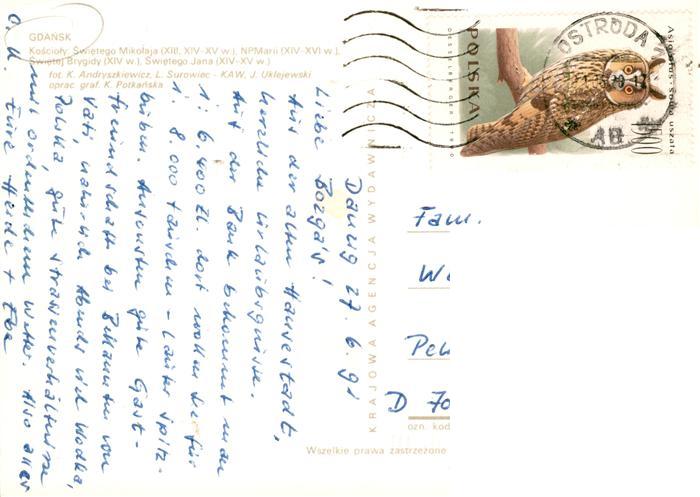 GDAŃSK
Kościoły: Świętego Mikołaja (XIII, XIV-XV w.), NPMarii (XIV-XVI w.),
Świętej Brygidy (XIV w.), Świętego Jana (XIV-XV w.)
fot. K. Andryszkiewicz, L. Surowiec - KAW, J. Uklejewski
oprac. graf. K. Potkańska
Danzig 27.6.91
Liebe
Aus der alten Hansestadt,
herzliche Urlaubsgrüsse.
Auf der Bank bekommt man
1: 6.400 Zl. dort wollen sie für
1: 8.000 tauschen - Lauter Spitz-
buben. Ansonsten gute Gast-
freundschaft bei Bekannten von
Vati, natürlich Abends viel Wodka,
Polska, gute Strassenverhältnisse
mit ordentlichem Wetter. Also alles
o.k. Eure Heide +
KRAJOWA AGENCJA WYDAWNICZA
POLSKA
Asio otus · Sowa uszata
OSTRÓDA
Fam.
D 70
ozn. kod
Wszelkie prawa zastrzeżone